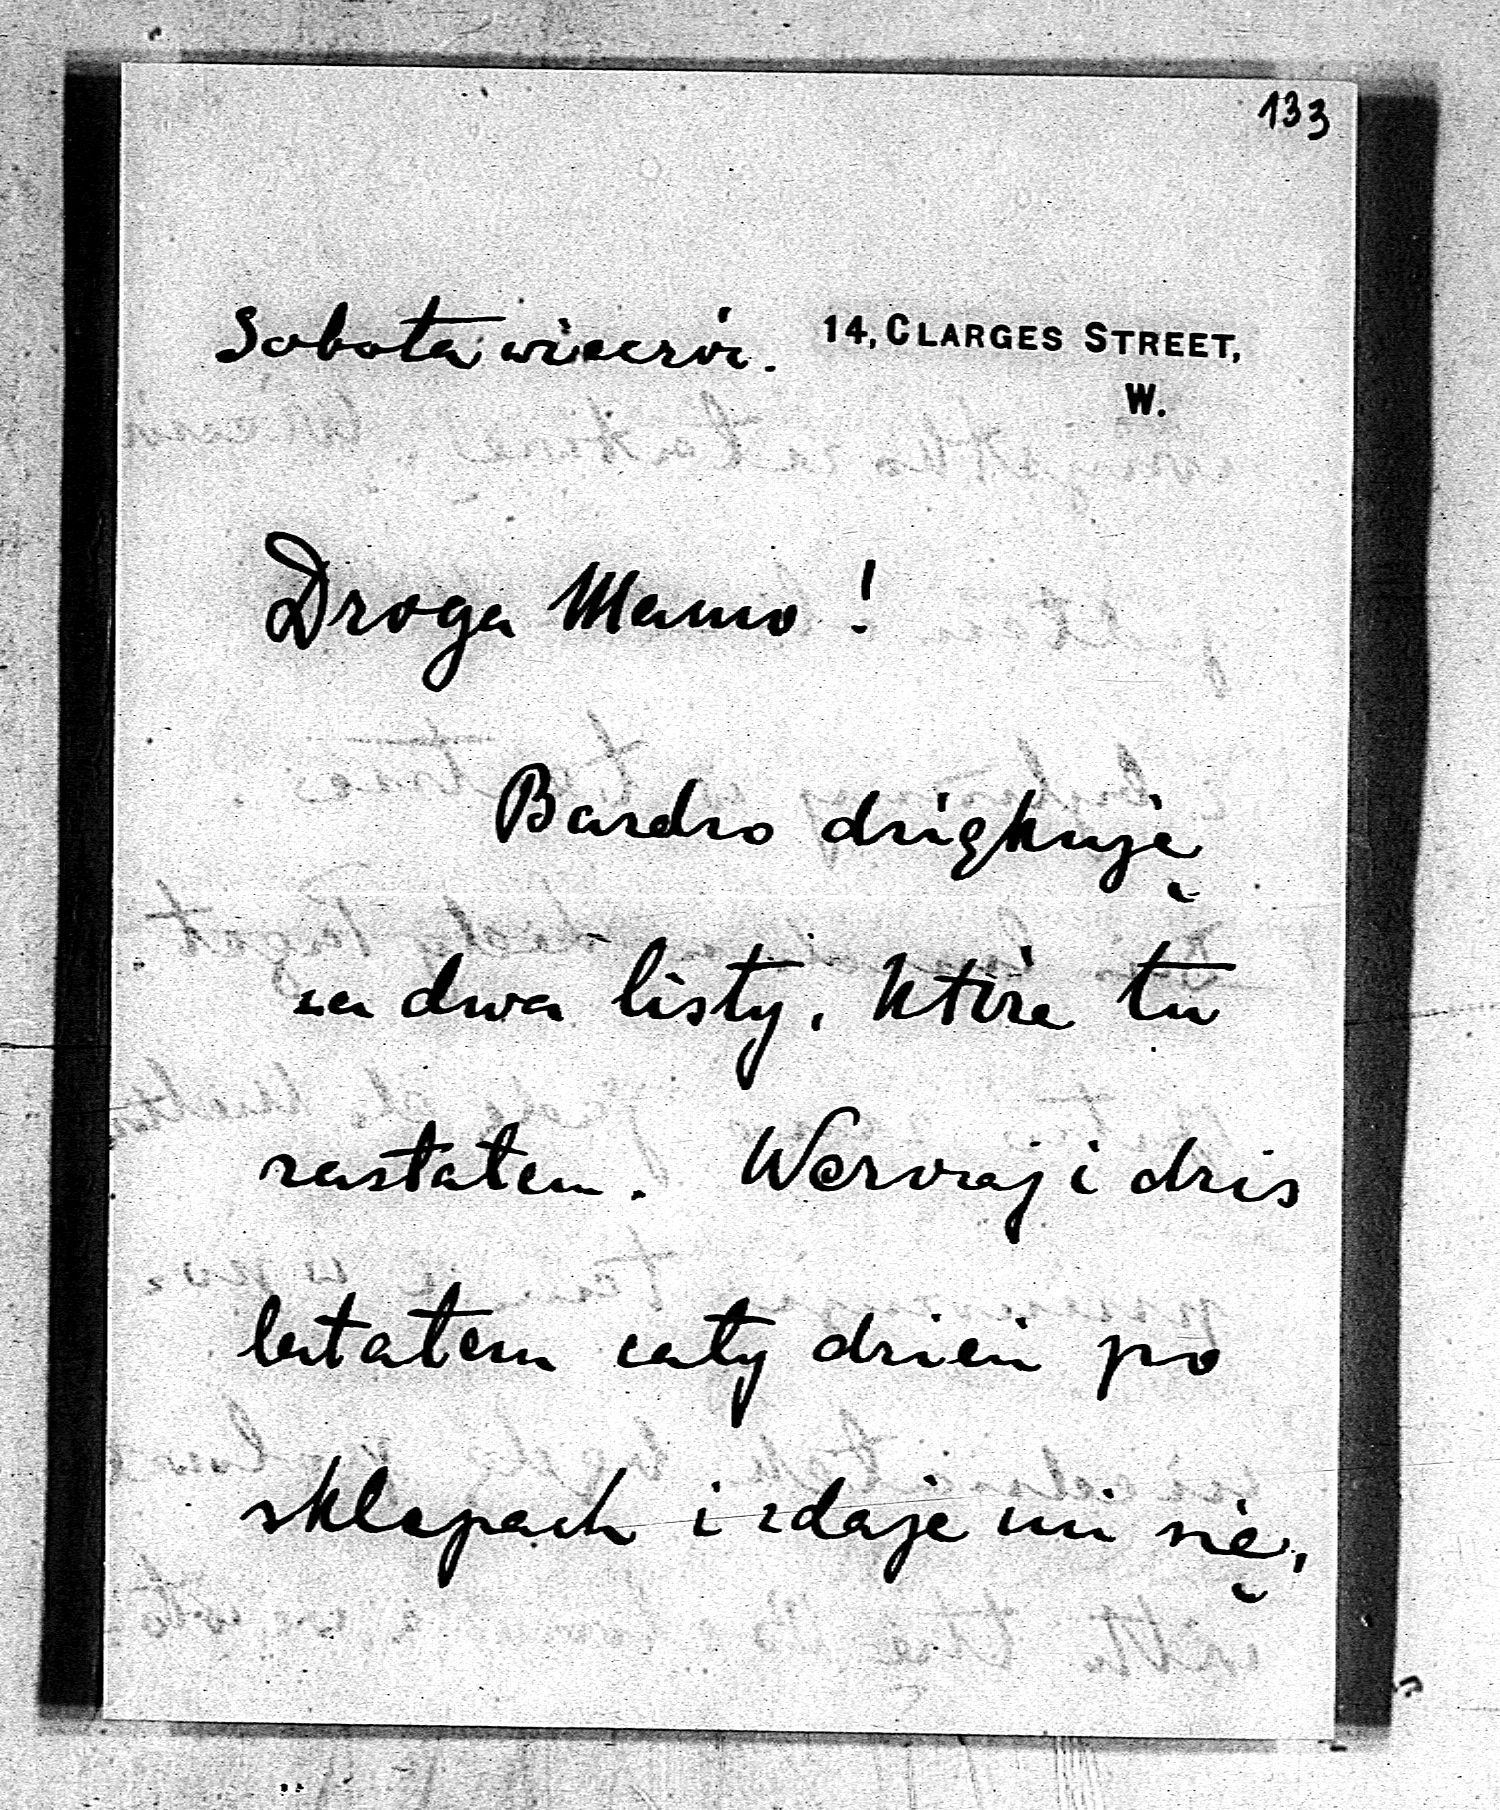 133
Sobota wieczór.
14, CLARGES STREET,
W.
Droga Mamo!
Bardzo dziękuję
za dwa listy, które tu
zastałem. Wczoraj i dziś
latałem cały dzień po
sklepach i zdaje mi się,